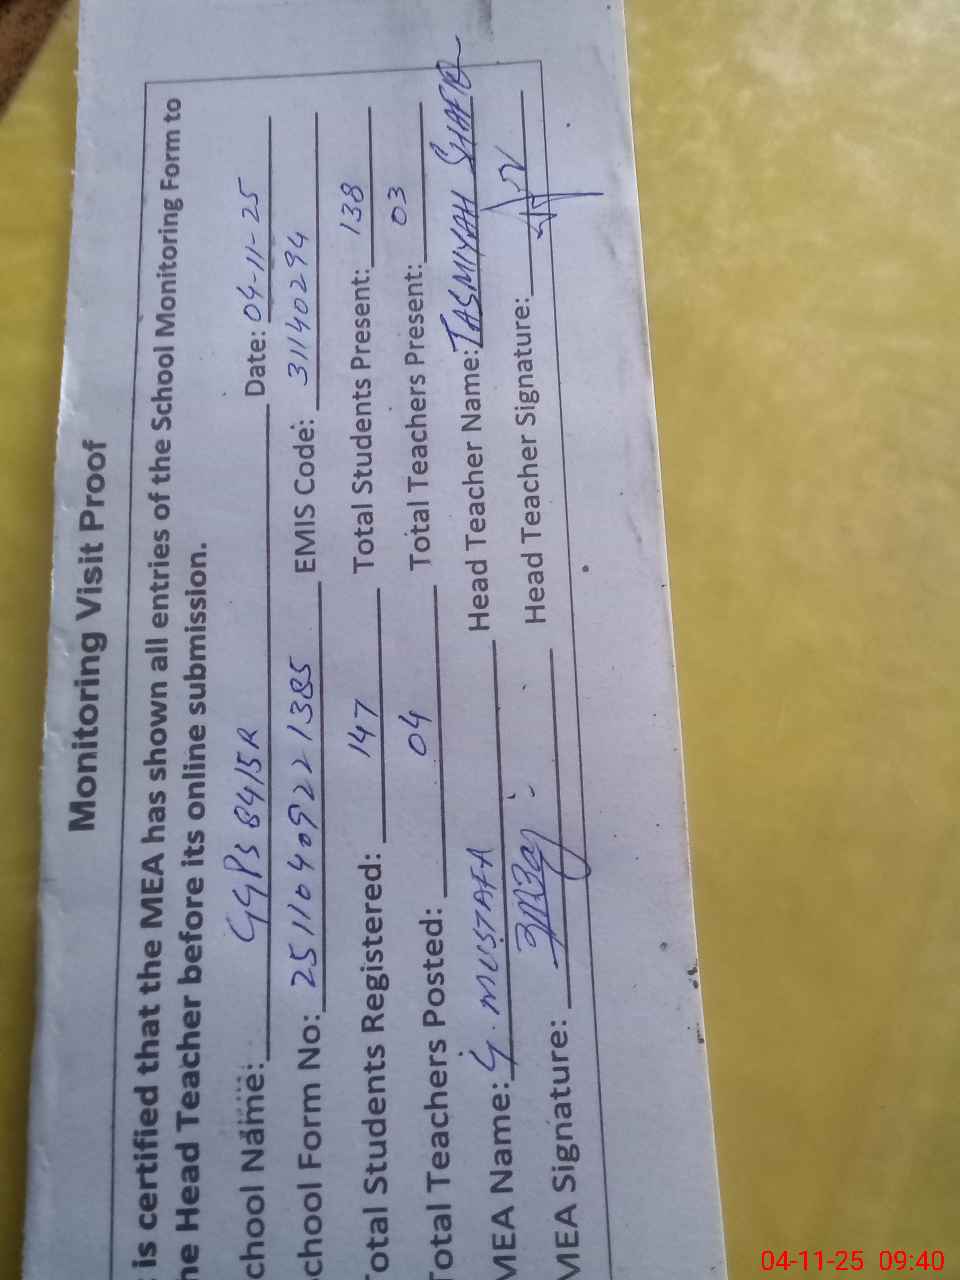 Monitoring Visit Proof
is certified that the MEA has shown all entries of the School Monitoring Form to
he Head Teacher before its online submission.
chool Name: GGPS 84/5R Date: 04-11-25
chool Form No: 25110409221385 EMIS Code: 31140294
Total Students Registered: 147 Total Students Present: 138
Total Teachers Posted: 04 Total Teachers Present: 03
MEA Name: G. MUSTAFA Head Teacher Name: TASMIYAH SHAFIQ
MEA Signature: Head Teacher Signature:
04-11-25 09:40